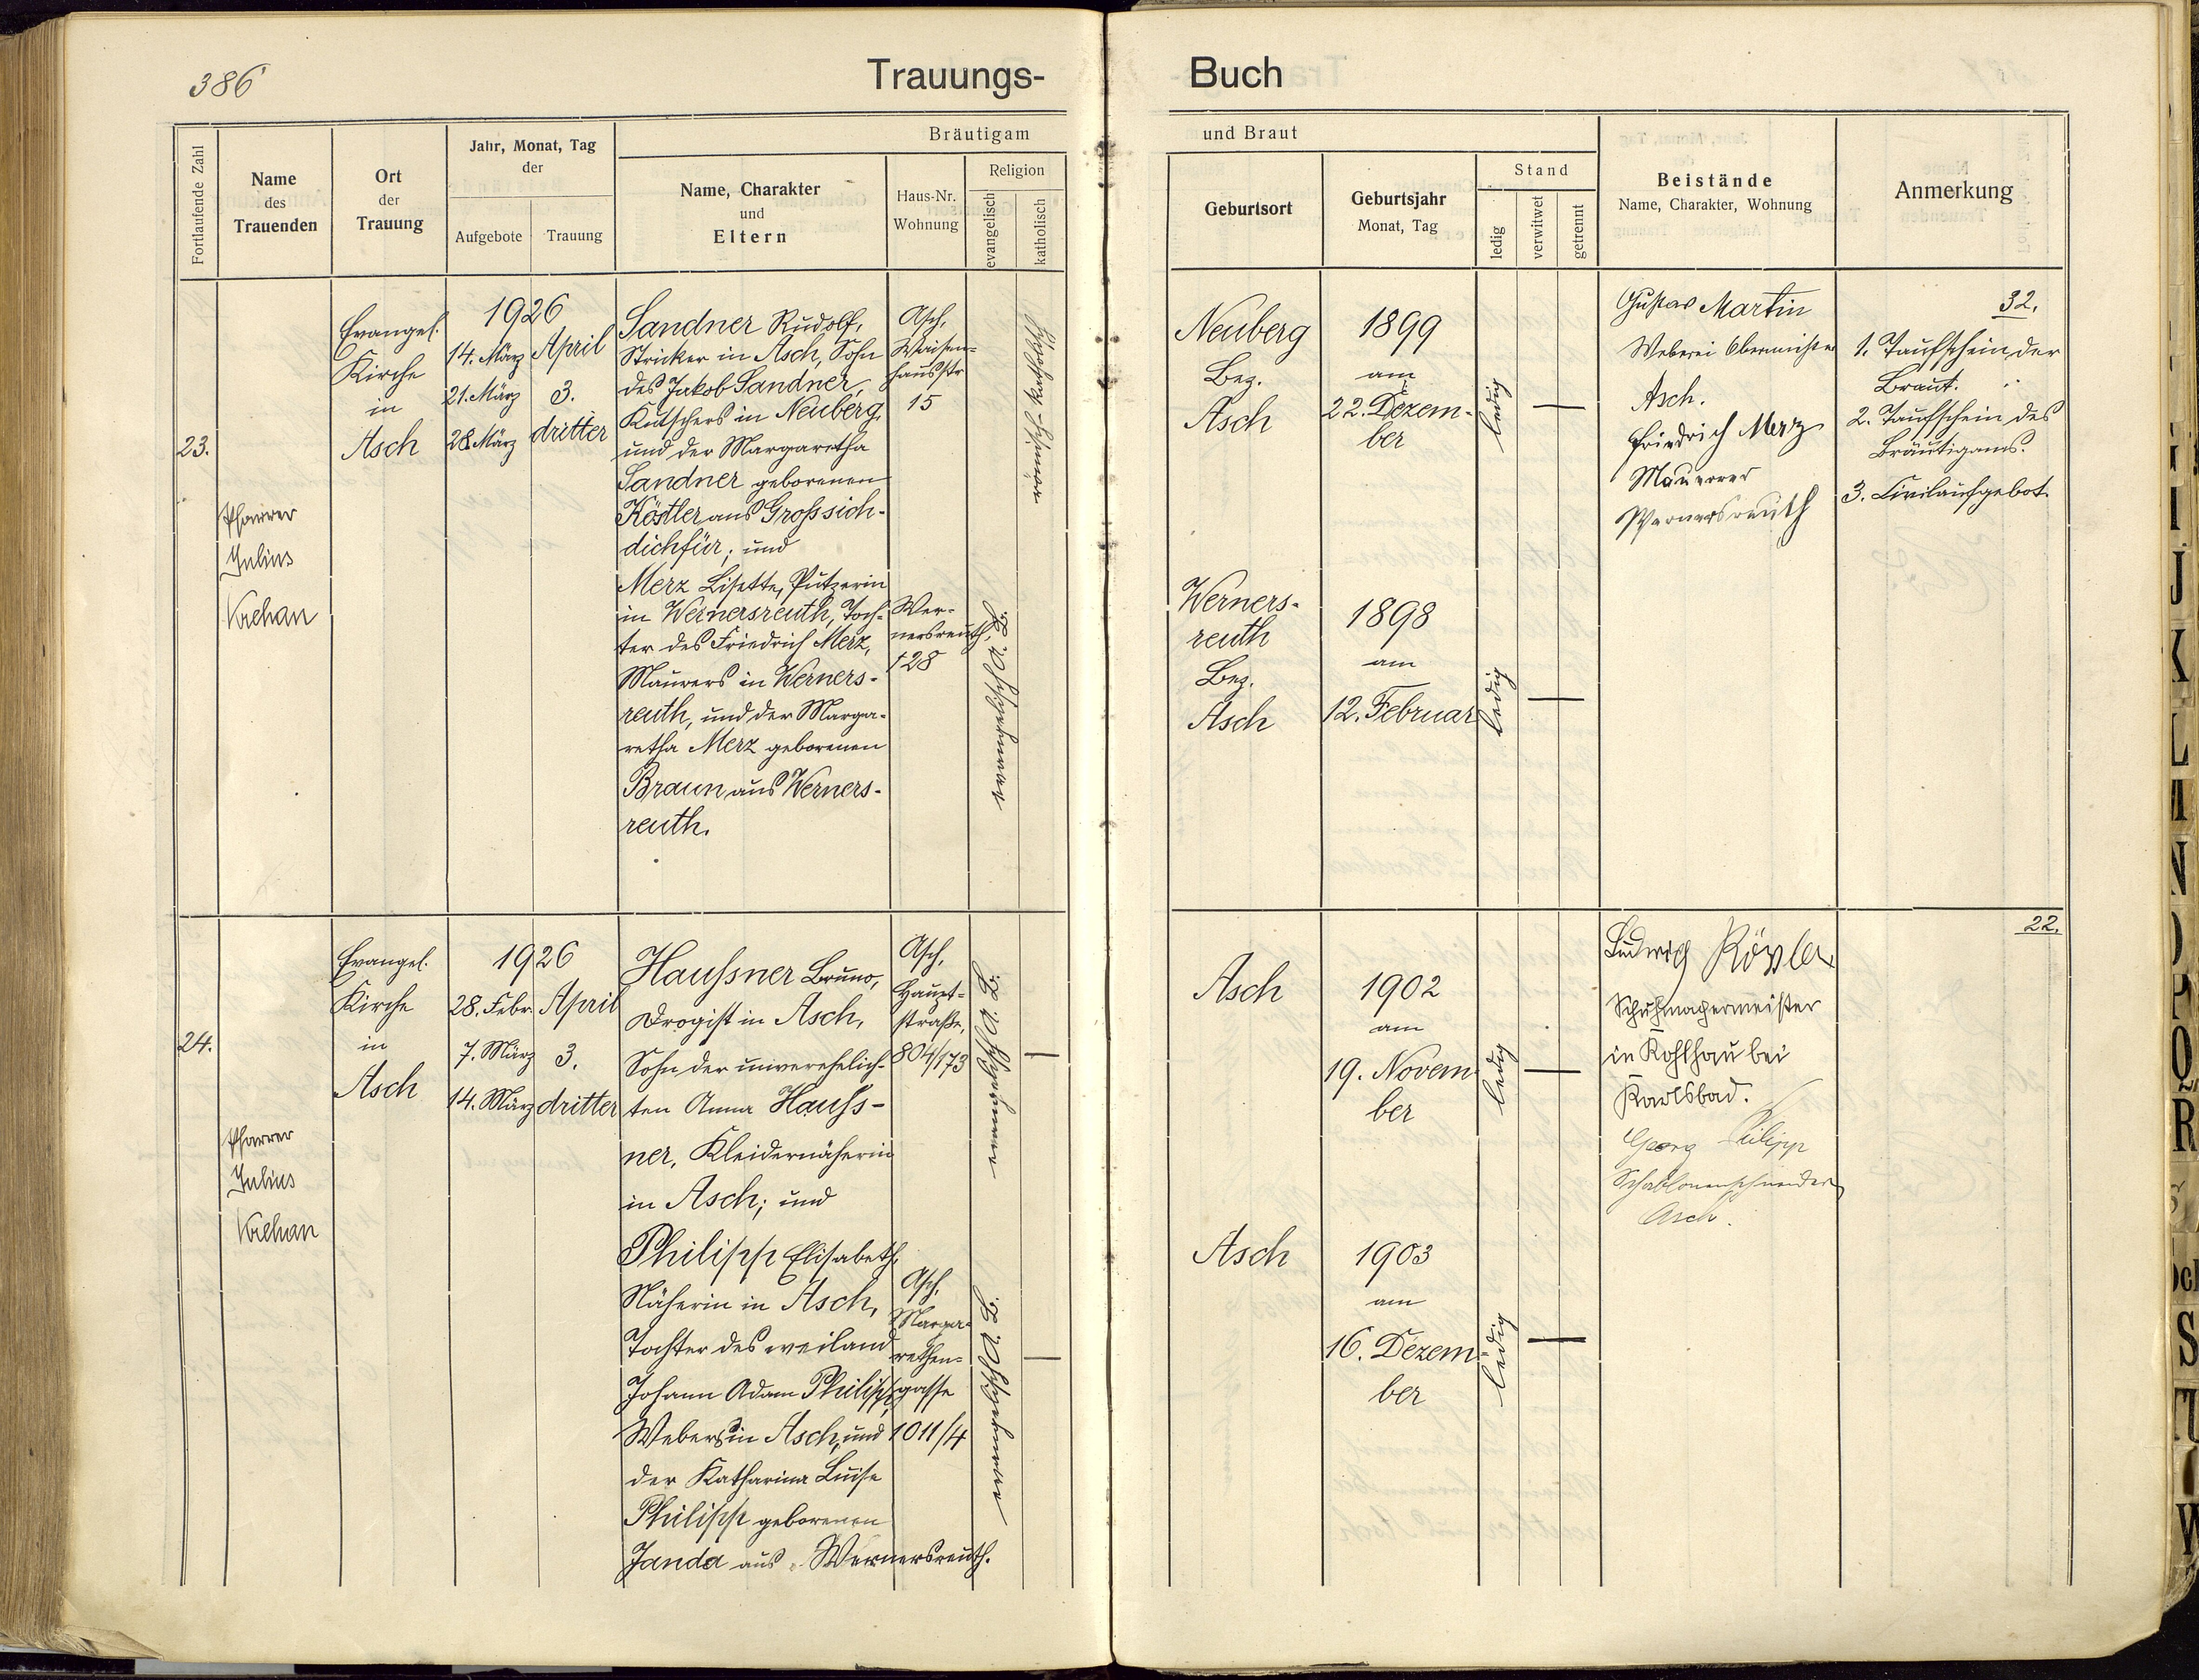 386
Trauungs-
Buch
Fortlaufende Zahl
Name
des
Trauenden
Ort
der
Trauung
Jahr, Monat, Tag
der
Aufgebote
Trauung
Bräutigam
Name, Charakter
und
Eltern
Haus-Nr.
Wohnung
Religion
evangelisch
katholisch
und Braut
Geburtsort
Geburtsjahr
Monat, Tag
Stand
ledig
verwitwet
getrennt
Beistände
Name, Charakter, Wohnung
Anmerkung
23.
Pfarrer
Julius
Krehan
Evangel.
Kirche
in
Asch
1926
14. März
21. März
28. März
April
3.
dritter
Sandner Rudolf,
Stricker in Asch, Sohn
des Jakob Sandner,
Kutschers in Neuberg,
und der Margaretha
Sandner geborenen
Köstler aus Grosssich-
dichfür; und
Merz Lisette, Putzerin
in Wernersreuth, Toch-
ter des Friedrich Merz,
Maurers in Werners-
reuth, und der Marga-
retha Merz geborenen
Braun aus Werners-
reuth.
Asch,
Waisen-
hausstr
15
Wer-
nersreuth,
128
römisch-katholisch
evangelisch A. B.
Neuberg
Bez.
Asch
1899
am
22. Dezem-
ber
ledig
Werners-
reuth
Bez.
Asch
1898
am
12. Februar
ledig
Gustav Martin
Weberei Obermeister
Asch.
Friedrich Merz
Maurer
Wernersreuth
32.
1. Taufschein der
Braut.
2. Taufschein des
Bräutigams.
3. Civilaufgebot.
24.
Pfarrer
Julius
Krehan
Evangel.
Kirche
in
Asch
1926
28. Febr.
7. März
14. März
April
3.
dritter
Haussner Bruno,
Drogist in Asch,
Sohn der unverehelich-
ten Anna Hauss-
ner, Kleidernäherin
in Asch; und
Philipp Elisabeth,
Näherin in Asch,
Tochter des weiland
Johann Adam Philipp,
Webers in Asch, und
der Katharina Luise
Philipp geborenen
Janda aus Wernersreuth.
Asch,
Haupt-
straße,
804/173
Asch,
Marga-
rethen-
gasse
1011/4
evangelisch A. B.
evangelisch A. B.
Asch
1902
am
19. Novem
ber
ledig
Asch
1903
am
16. Dezem-
ber
ledig
Ludwig
Schuhmachermeister
in Kohlhau bei
Karlsbad.
Georg Philipp
Asch.
22.